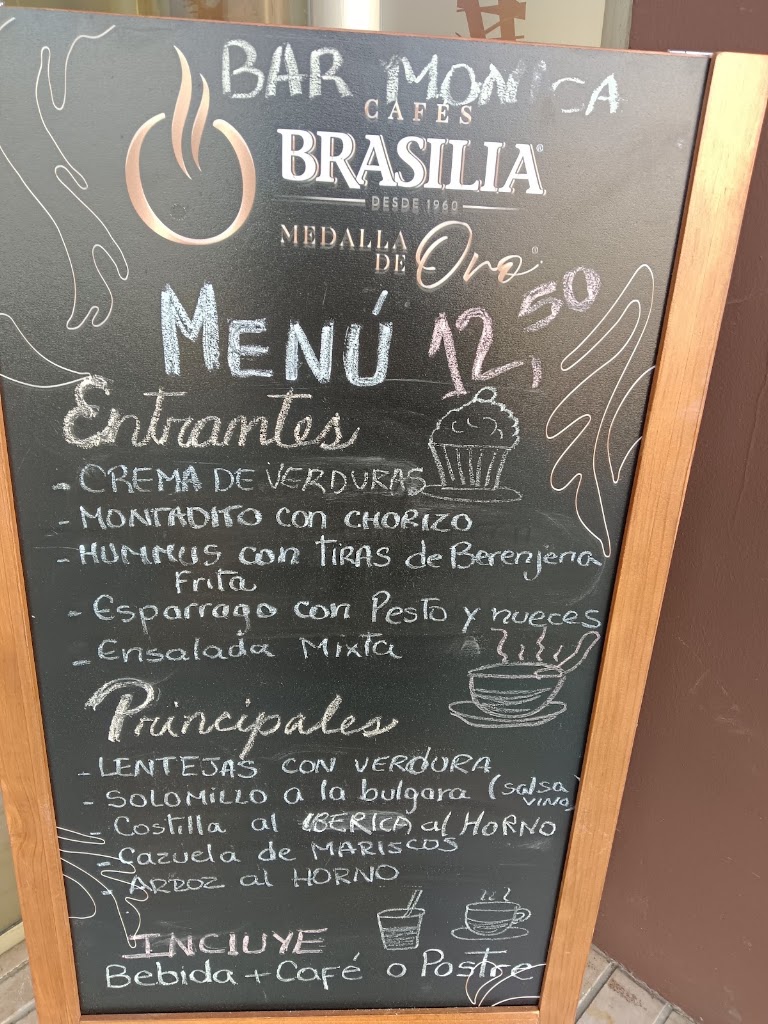 BAR MONICA
CAFÉS
BRASILIA
DESDE 1960
MEDALLA
DE Oro
MENÚ 12,50
Entrantes
- CREMA DE VERDURAS
- MONTADITO con CHORIZO
- HUMMUS con TIRAS de Berenjena
Frita
- Esparrago con Pesto y nueces
- Ensalada Mixta
Principales
- LENTEJAS CON VERDURA
- SOLOMILLO a la bulgara (salsa
VINO)
- Costilla al IBERICA al HORNO
- Cazuela de MARISCOS
- ARROZ al HORNO
INCIUYE
Bebida + Café o Postre